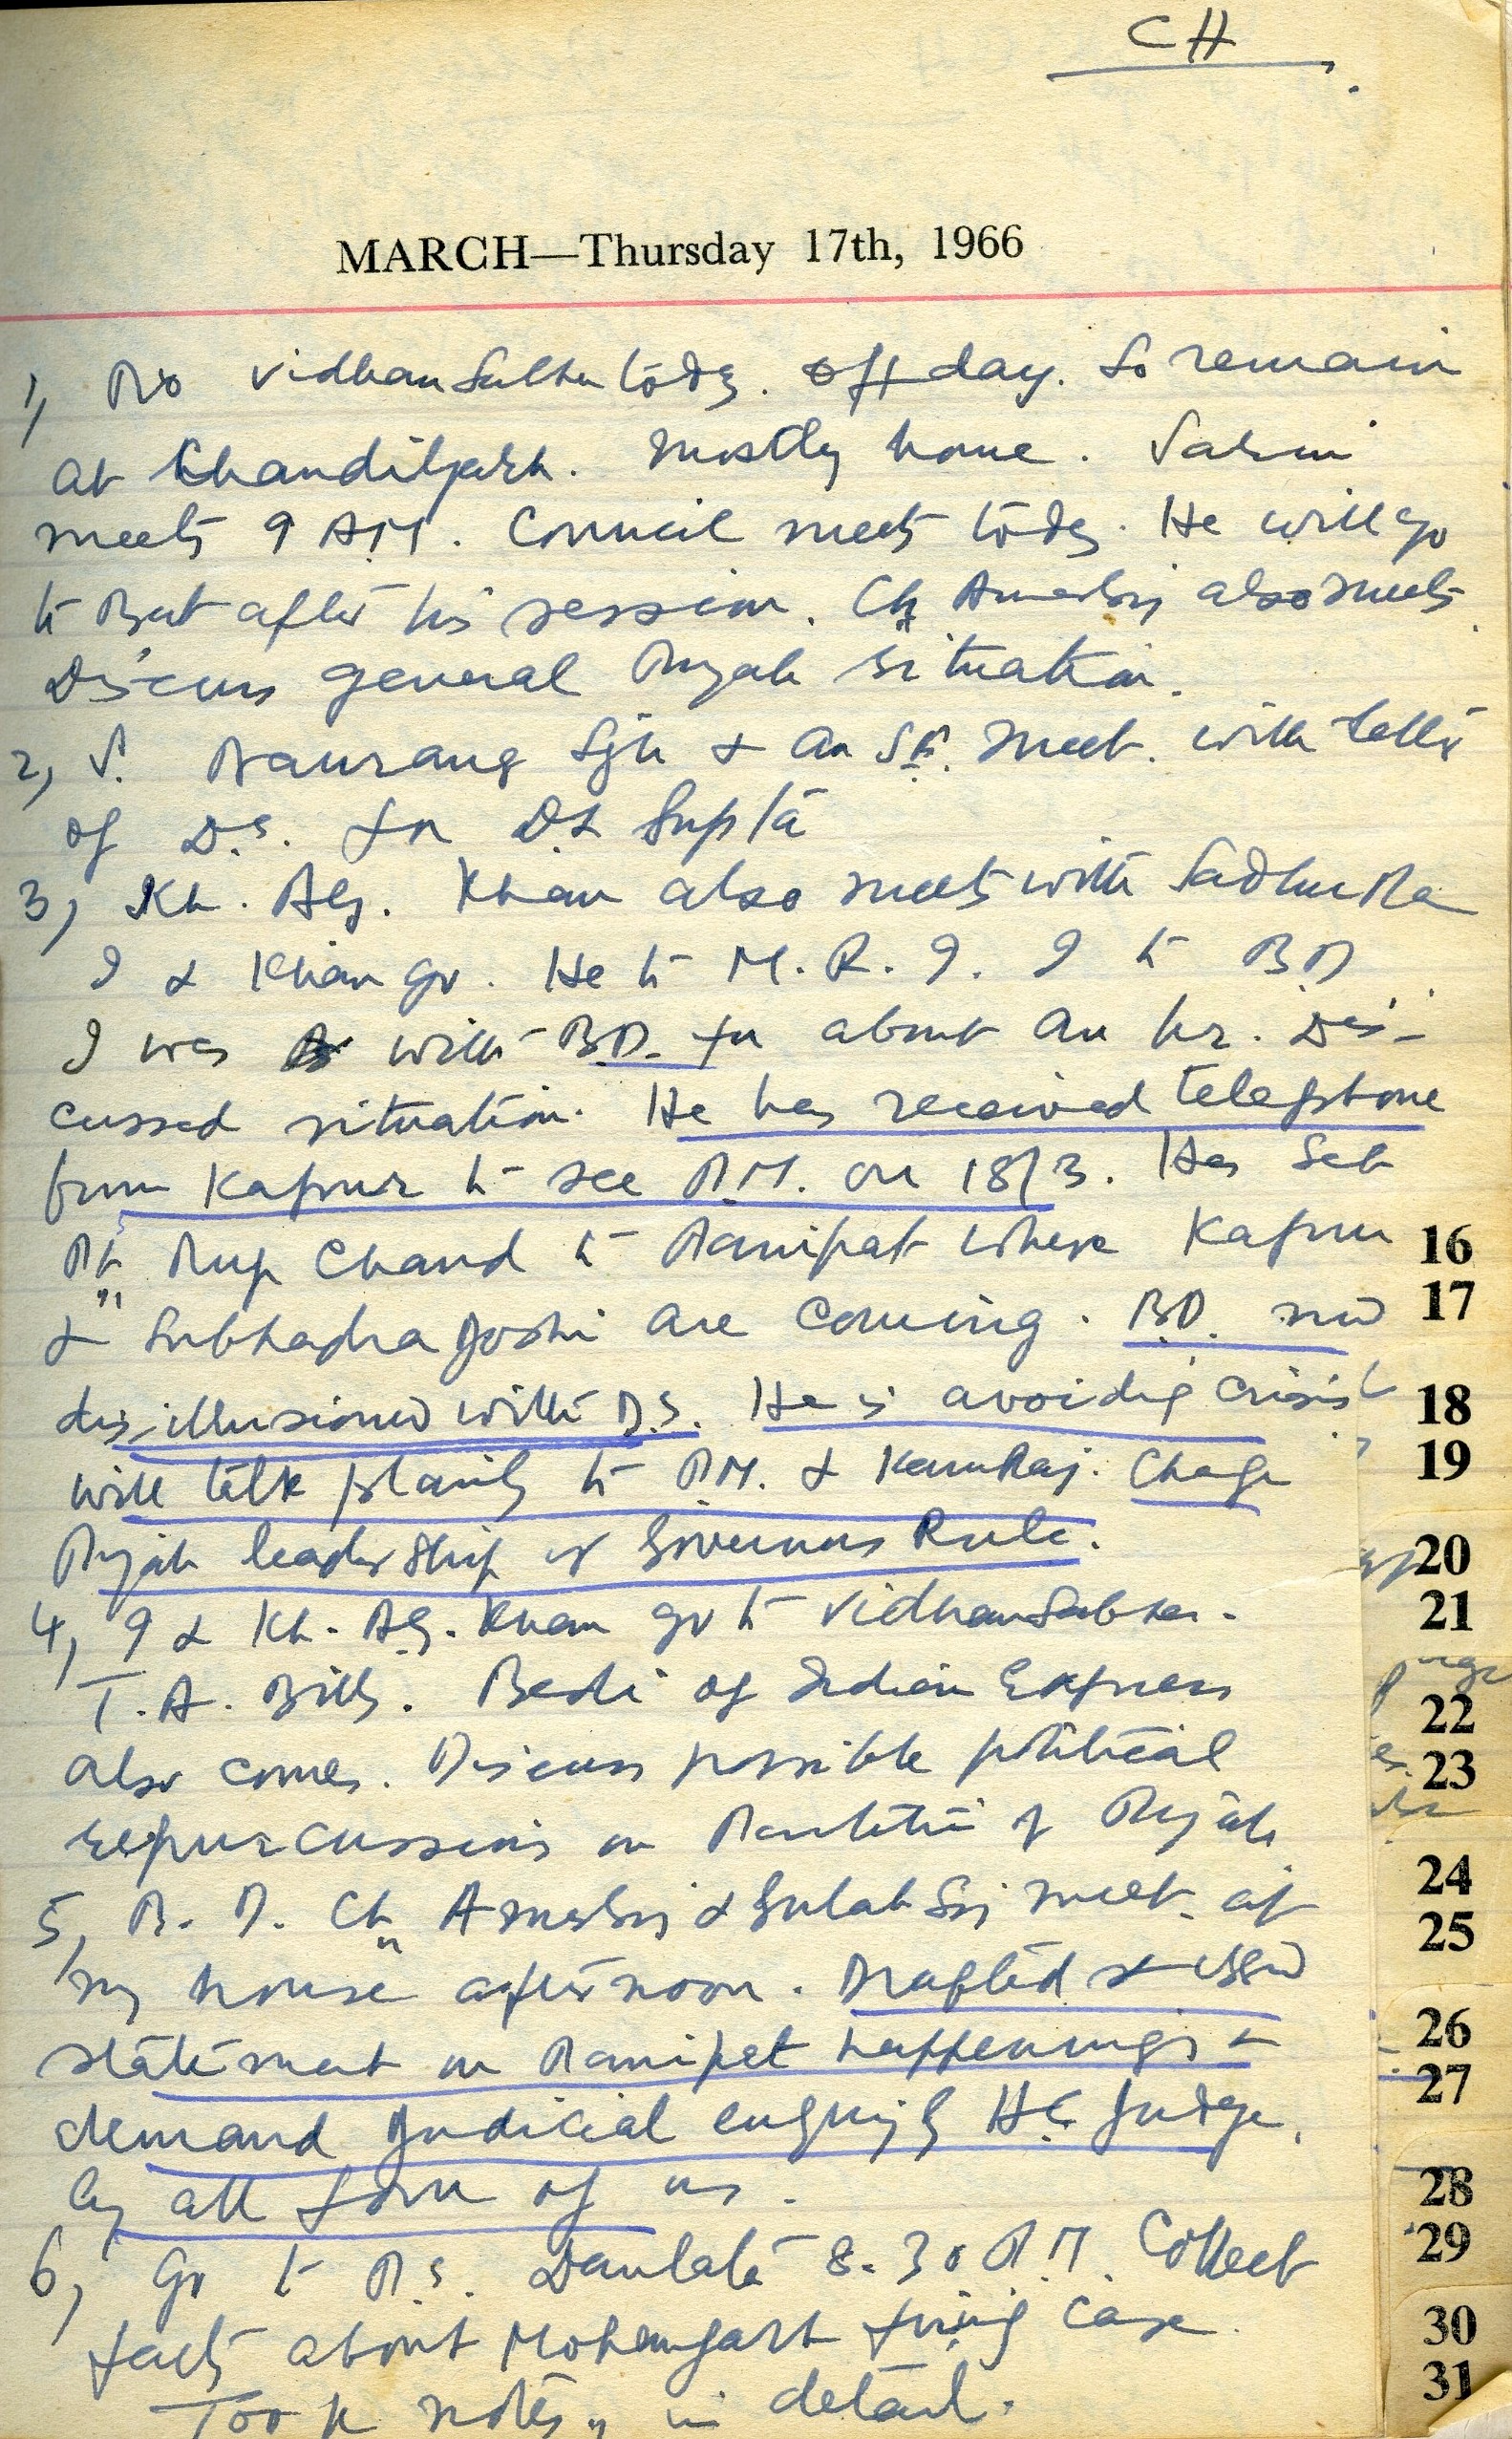 CH
MARCH—Thursday 17th, 1966
1, No VidhanSabha today. Off day. So remain
at Chandigarh. Mostly home.
meets 9 AM. Council meets today. He will go
to but after his session. Ch. Amarsing also meets
Discuss general Punjab situation.
2, S. Naurang Sgh & an S.P. meet. with letter
of D.S. for D.D. Gupta
3, Kh. Ag. Khan also meets with Sadhu Ra
I & Khan go. He to M.R.I. I to B.D.
I was with B.D. for about an hr. Dis-
cussed situation. He has received telephone
from Kapur to see P.M. on 18/3. Has set
Pt. Rup Chand to Panipat where Kapur
& Subhadra Joshi are coming. B.D. now
disillusioned with D.S. He is avoiding crisis
will talk plainly to P.M. & KamRaj. Change
Punjab leadership or Governors Rule.
4, I & Kh. Ag. Khan go to VidhanSabha.
T.A. Bills. Bedi of Indian Express
also comes. Discuss possible political
repurcussions on Partition of Punjab
5, B.D. Ch. Amarsing & Gulab Sing meet at
my house afternoon. Drafted & issued
statement on Panipat happenings &
demand Judicial enquiry by HC Judge,
by all four of us.
6, Go to P.S. Daulata 8.30 P.M. Collect
facts about Mohemgarh firing case.
Took notes in detail.
16
17
18
19
20
21
22
23
24
25
26
27
28
29
30
31